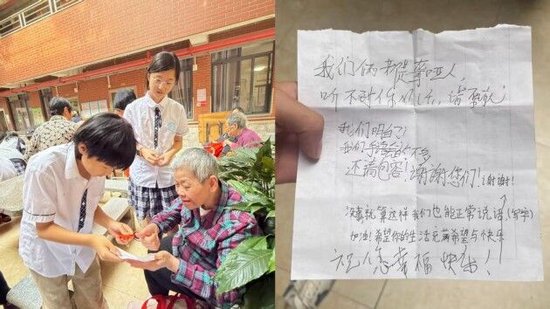 我们俩都是聋哑人,
听不到你们话,请原谅
我们明白了!
还请包容!谢谢您们!谢谢!
没事就算这样我们也能正常说话(写字)
加油!希望你的生活充满希望与快乐
祝您幸福快乐!